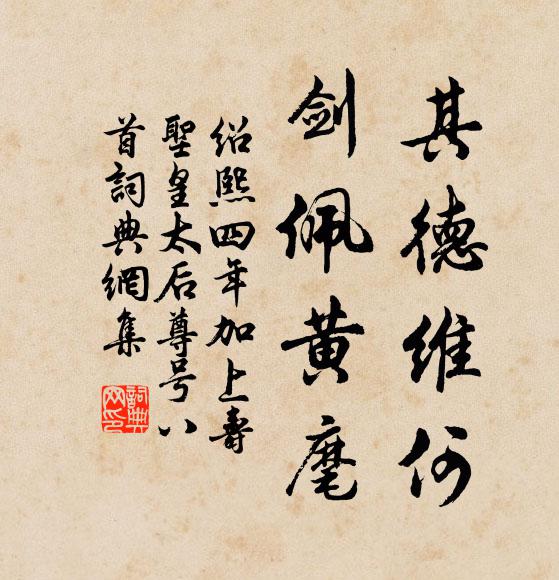 其德維何
剑佩黄麾
绍熙四年加上壽
聖皇太后尊号八
首詞典網集
詞典
网印